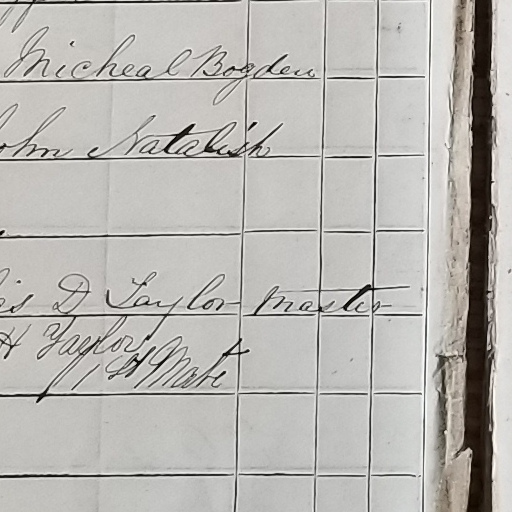 Micheal Bogden
John Natalish
D Taylor master
H Taylor
1st Mate